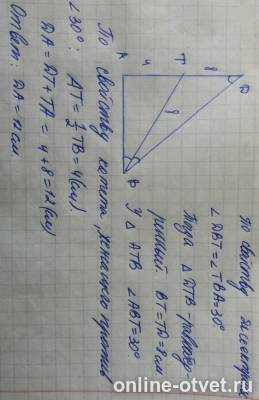 По свойству биссектрисы
∠DBT=∠TBA=30°
Тогда △DTB-равнобед-
ренный. BT=TD=8 см
У △ ATB ∠ABT=30°.
A
T
D
B
4
8
8
По свойству катета, лежащего против
∠30°: AT=½TB=4(см)
DA=DT+TA=4+8=12(см)
Ответ: DA=12 см.
online-otvet.ru